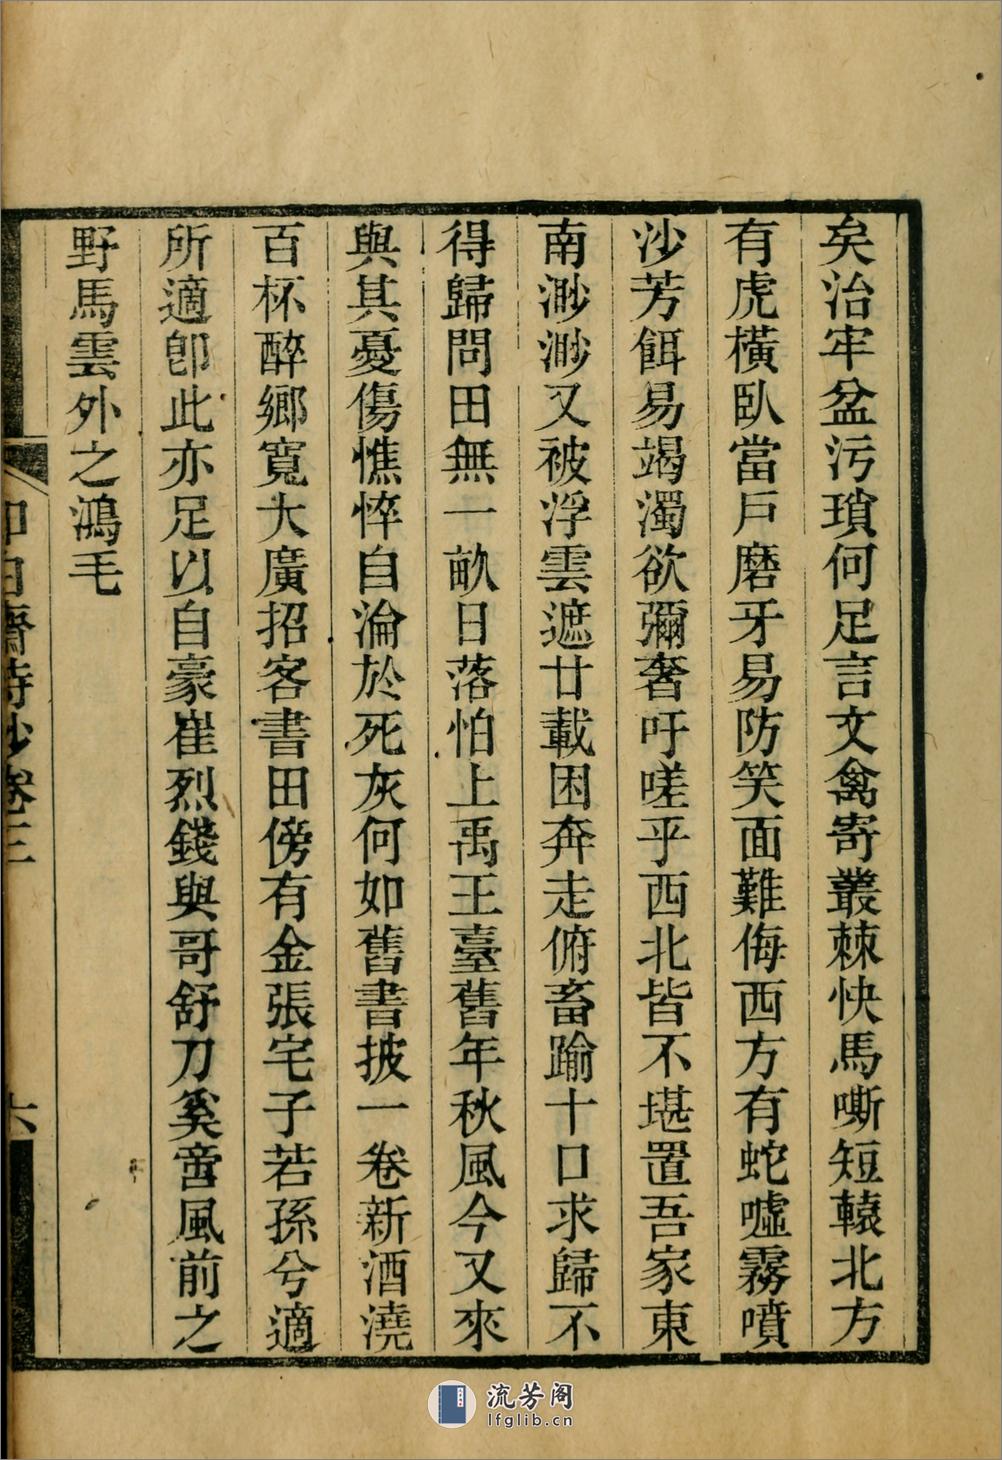 矣治牢盆污瑣何足言文禽寄叢棘快馬嘶短轅北方
有虎橫臥當戶磨牙易防笑面難侮西方有蛇噓霧噴
沙芳餌易竭濁欲彌奢吁嗟乎西北皆不堪置吾家東
南渺渺又被浮雲遮廿載困奔走俯畜踰十口求歸不
得歸問田無一畝日落怕上禹王臺舊年秋風今又來
與其憂傷憔悴自淪於死灰何如舊書披一卷新酒澆
百杯醉鄉寬大廣招客書田傍有金張宅子若孫兮適
所適卽此亦足以自豪崔烈錢與哥舒刀奚啻風前之
野馬雲外之鴻毛
齋詩鈔卷三
六
流芳阁
lfglib.cn